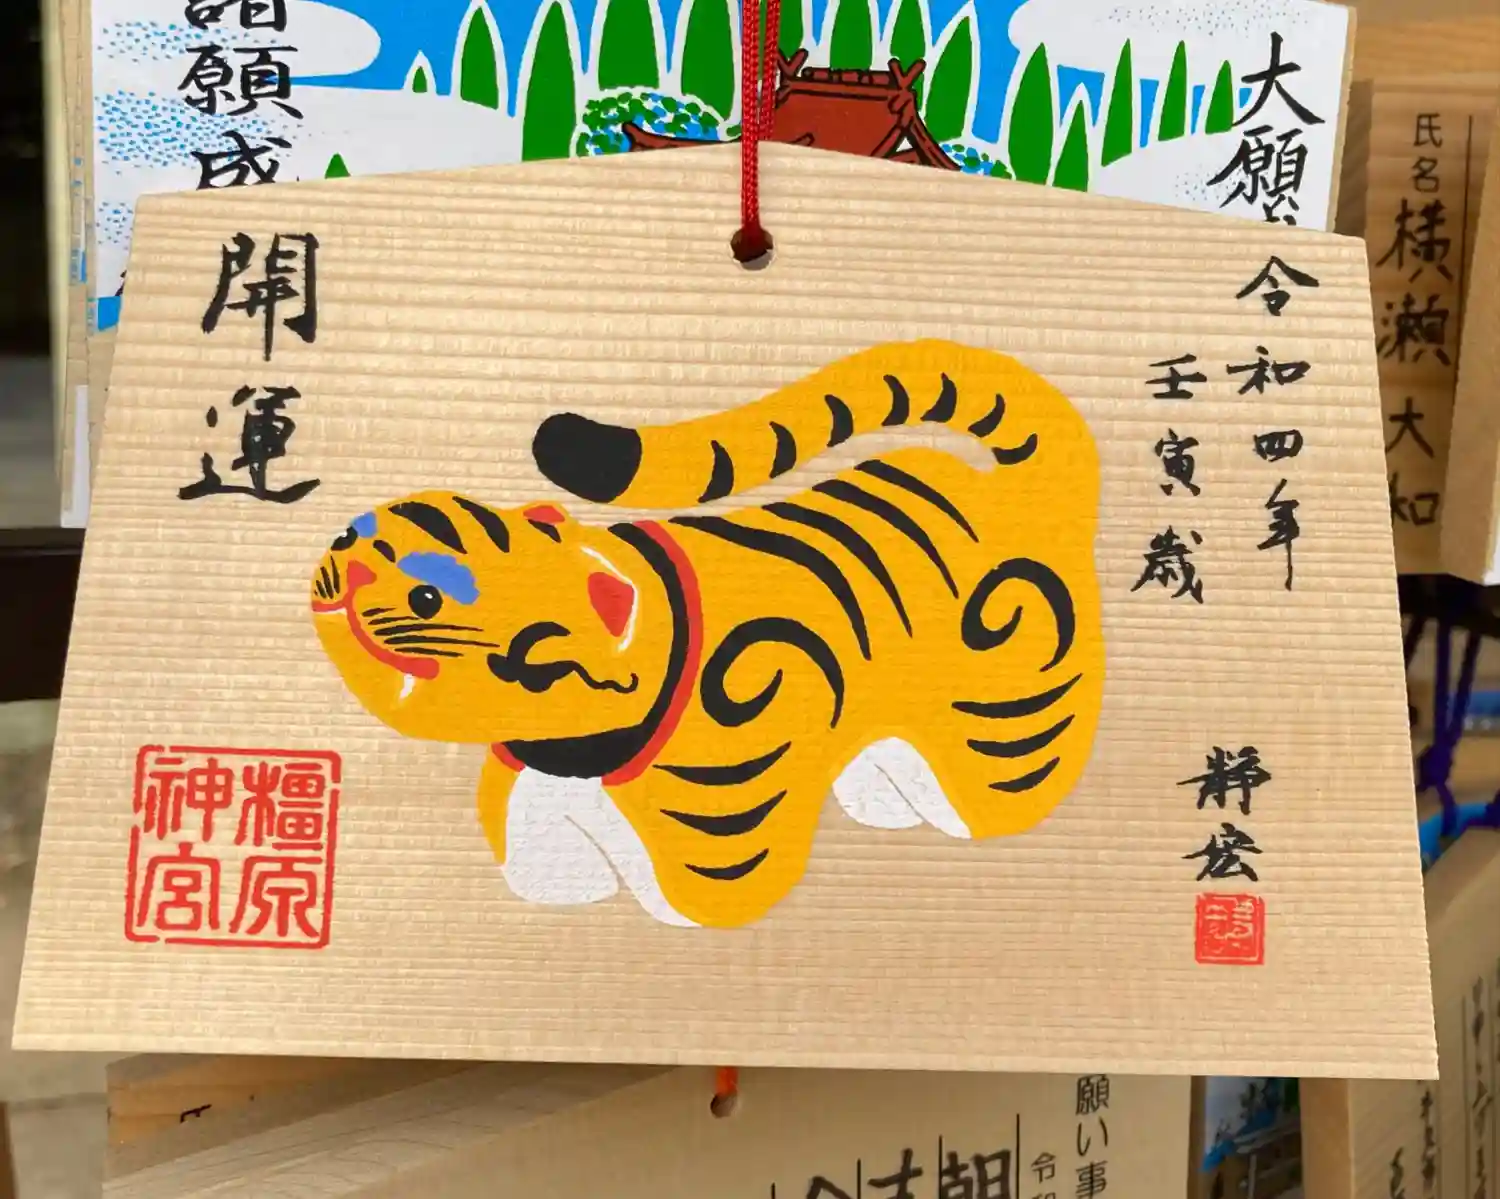 諸願成
大願
氏名
横瀬
大和
開運
令和四年
壬寅歳
静宏
橿原
神宮
願い事